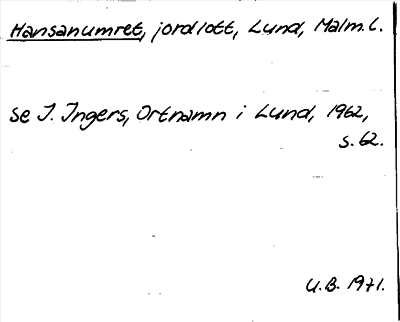 Hansanumret, jordlott, Lund, Malm. L.
Se J. Ingers, Ortnamn i Lund, 1962,
s. 62.
U.B. 1971.